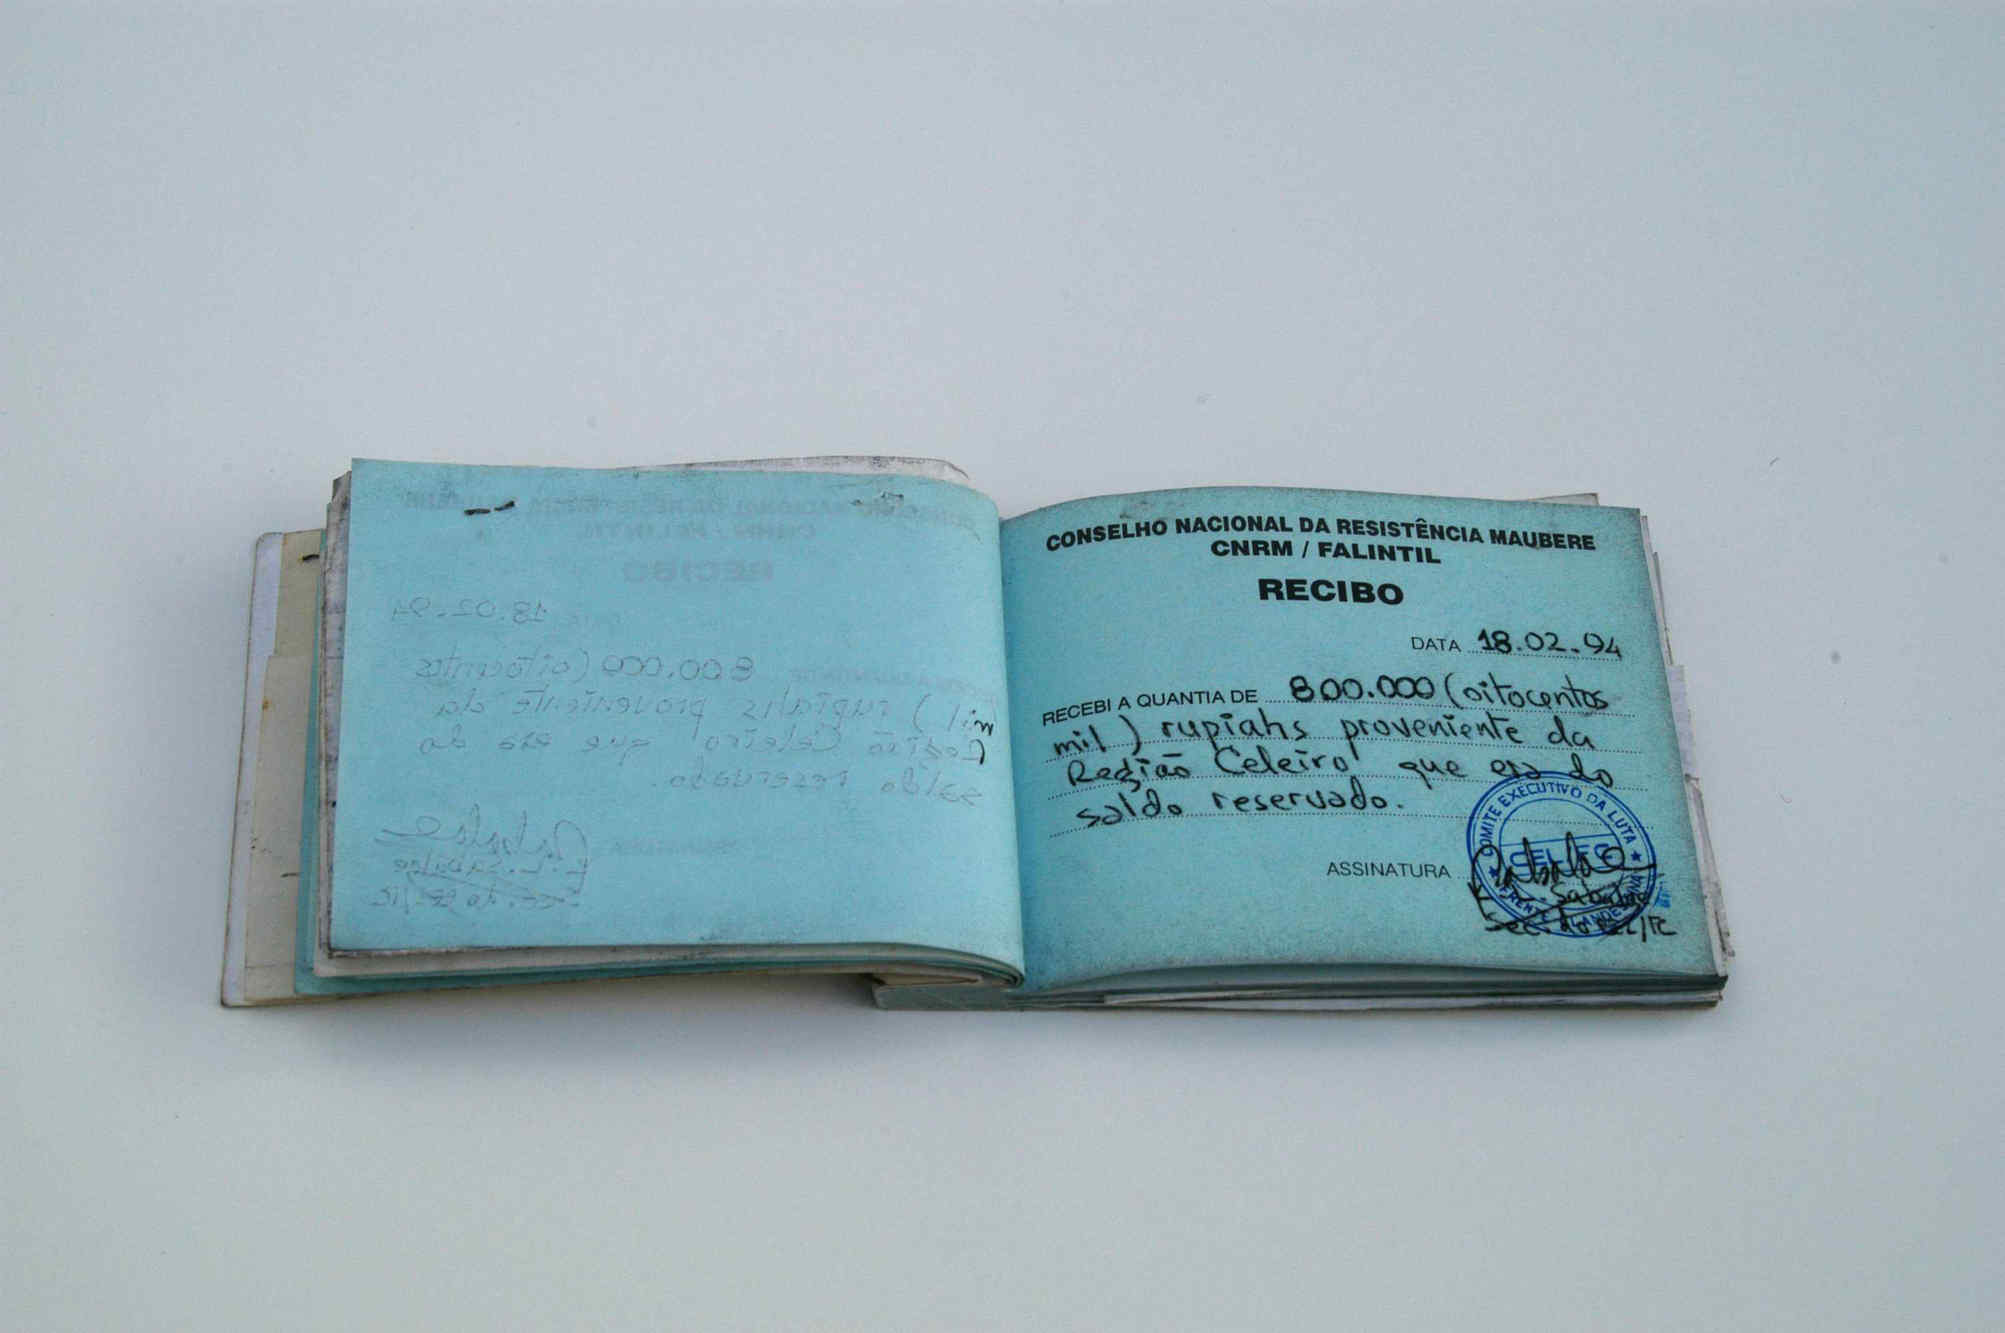 CONSELHO NACIONAL DA RESISTÊNCIA MAUBERE
CNRM / FALINTIL
RECIBO
DATA 18.02.94
RECEBI A QUANTIA DE 800.000 (oitocentos
mil) rupiahs proveniente da
Região Celeiro que era do
saldo reservado.
ASSINATURA
COMITE EXECUTIVO DA LUTA
CEL/FC
FRENTE CLANDESTINA
Sabalae
Sec. do CEL/FC